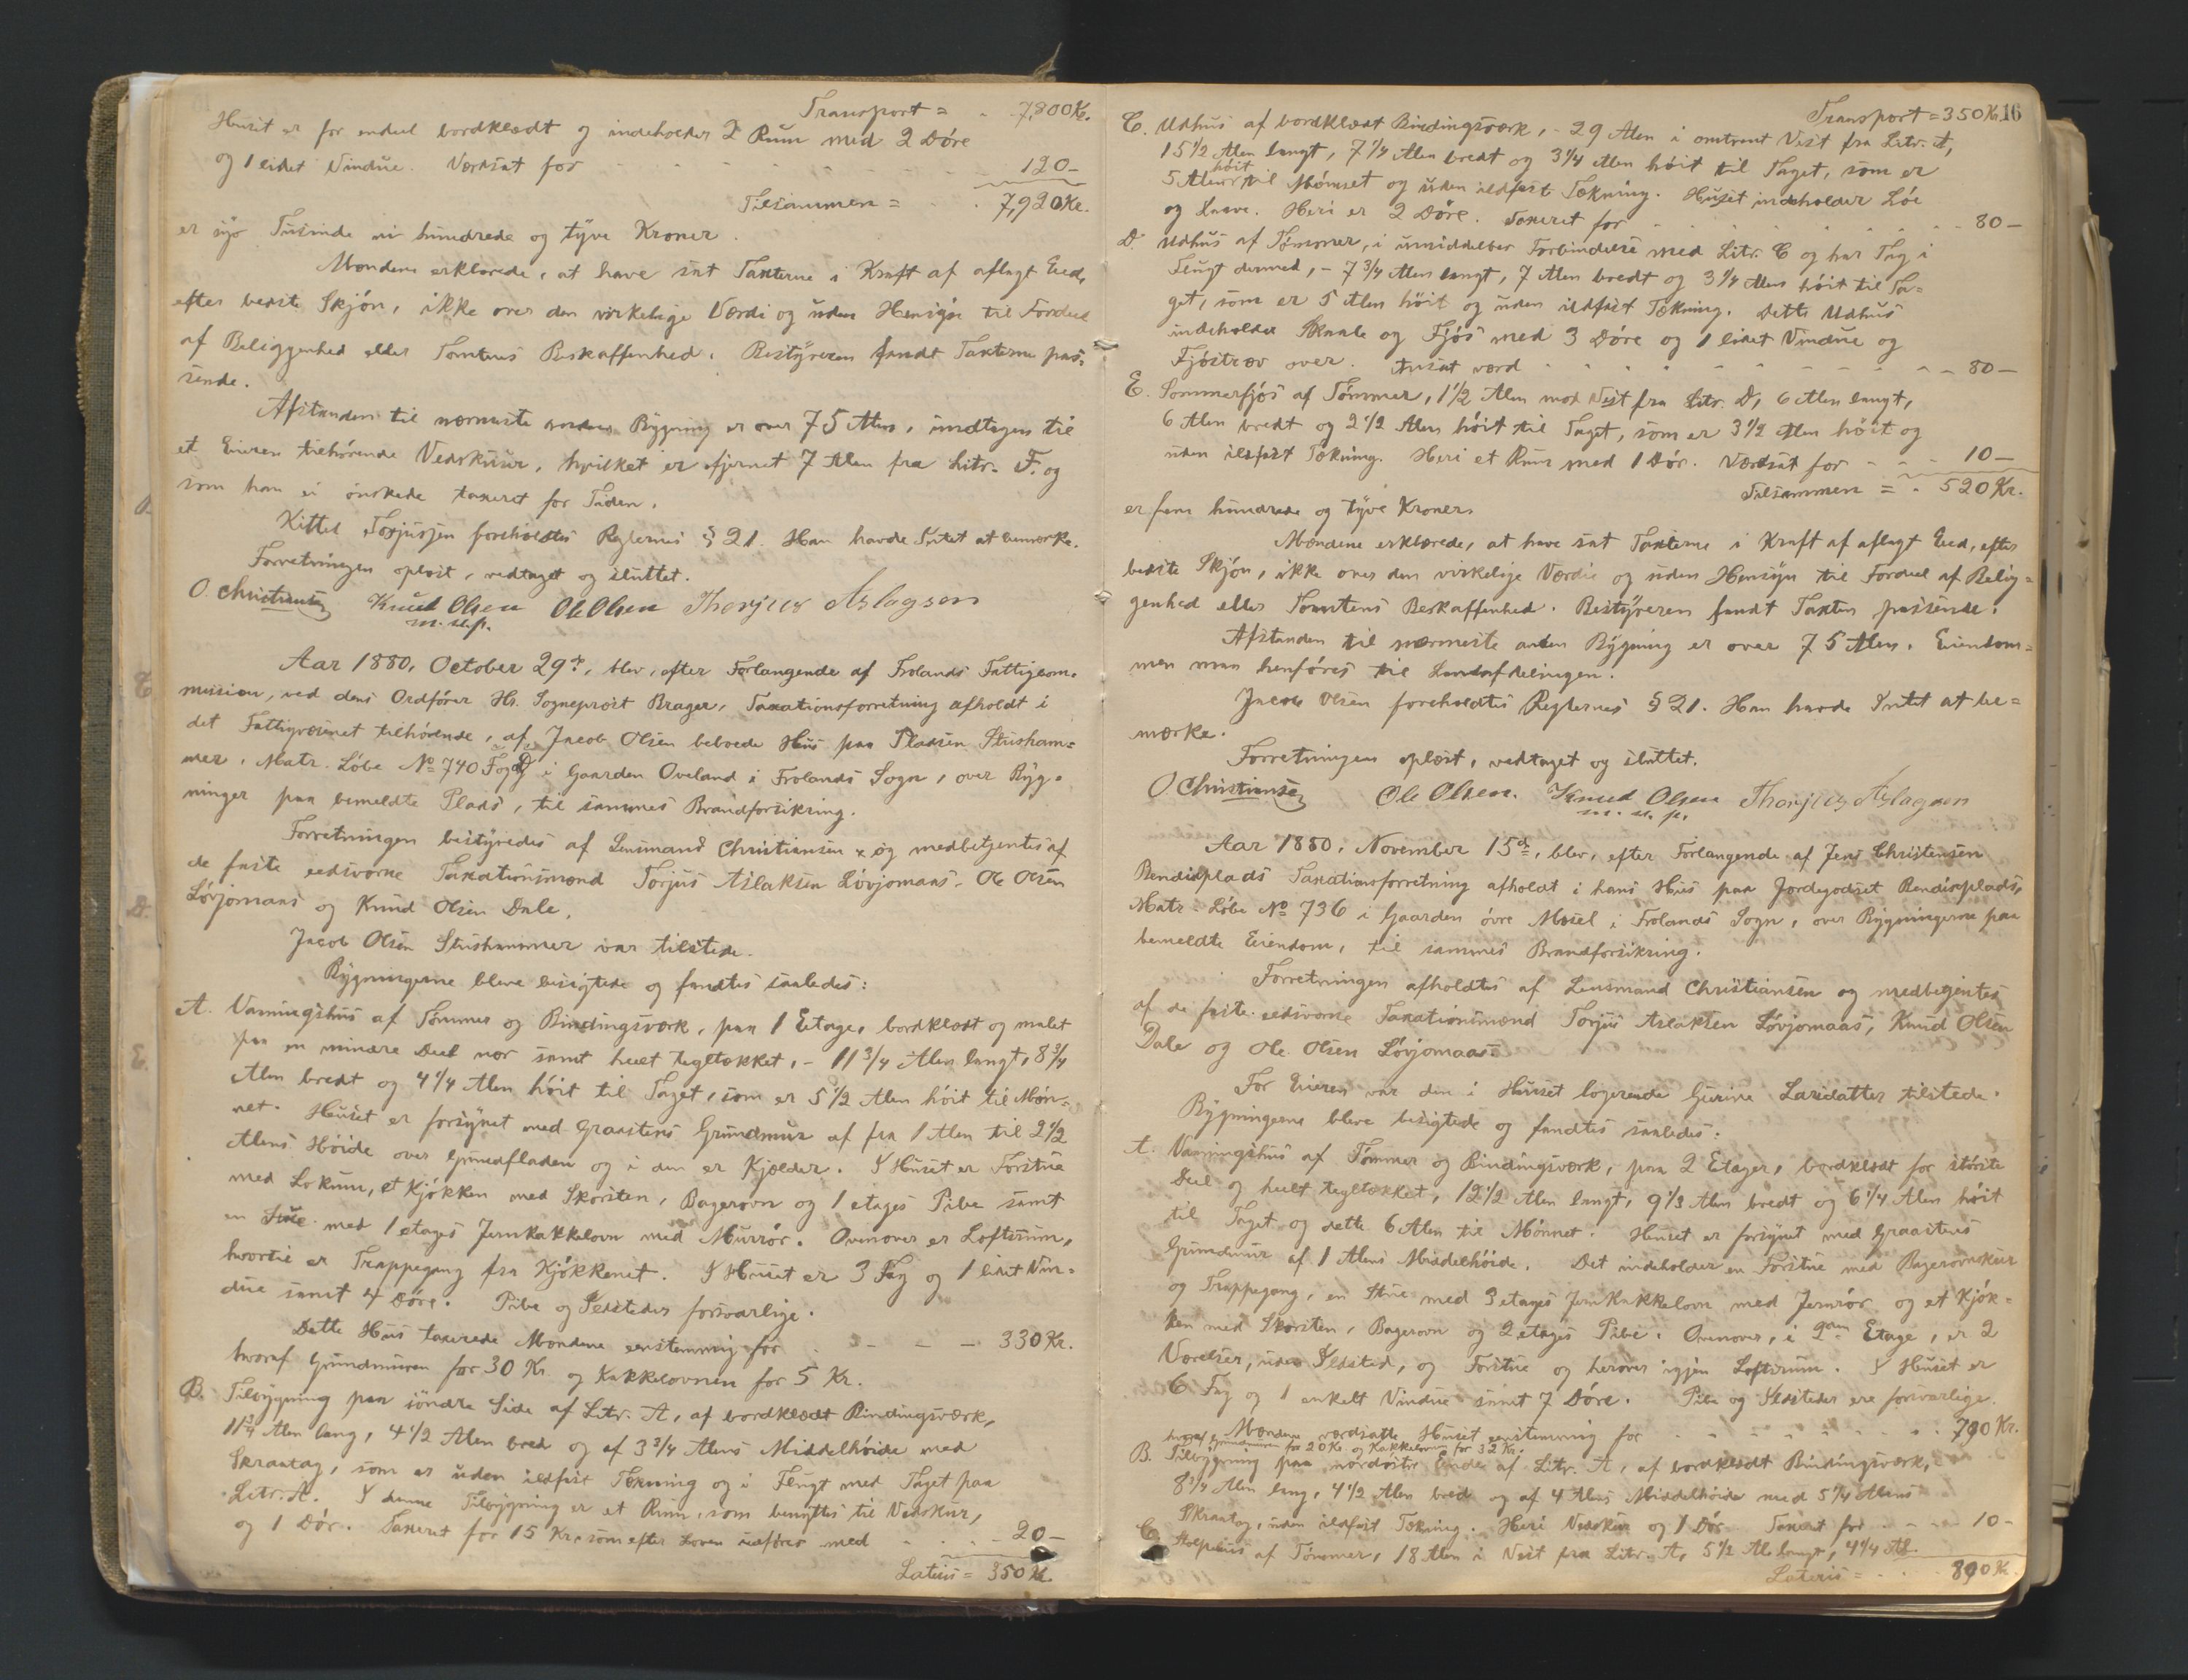 Transport = - 7,800 Kr.
Huset er for endeel bordklædt og indeholder 2 Rum med 2 Döre
og 1 lidet Vindue. Værdsat for - - - - - - 120 -
Tilsammen = - - 7,920 Kr.
er syv Tusinde ni hundrede og tyve Kroner.
Mændene erklærede, at have sat Taxterne i Kraft af aflagt Eed,
efter bedste Skjön, ikke over den virkelige Værdi og uden Hensyn til Fordeel
af Beliggenhed eller Tomtens Beskaffenhed. Bestyreren fandt Taxterne pas-
sende.
Afstanden til nærmeste anden Bygning er over 75 Alen, undtagen til
et Eieren tilhörende Vedskuur, hvilket er fjernet 7 Alen fra Litr. F. og
som han ei önskede taxeret for Tiden.
Kittel Torjusjen foreholdtes Reglernes § 21. Han havde Intet at bemærke.
Forretningen oplæst, vedtaget og sluttet.
O. Christiansen Knud Olsen Ole Olsen Thorjus Aslagsen
m. u. p.
Aar 1880, October 29de, blev, efter Forlangende af Frolands Fattigcom-
mission, ved dens Ordförer Hr. Sogneprost Brager, Taxationsforretning afholdt i
det Fattigvæsenet tilhörende, af Jacob Olsen beboede Hus paa Pladsen Stusham-
mer, Matr. Löbe No 740 i Gaarden Oveland i Frolands Sogn, over Byg-
ninger paa bemeldte Plads, til sammes Brandforsikring.
Forretningen bestyredes af Lensmand Christiansen og medbetjentes af
de faste eedsvorne Taxationsmænd Torjus Aslaksen Lövjomaas, Ole Olsen
Lövjomaas og Knud Olsen Dale.
Jacob Olsen Stushammer var tilstede.
Bygningerne bleve besigtede og fandtes saaledes:
A. Vaaningshus af Tömmer og Bindingsværk, paa 1 Etage, bordklædt og malet
paa en mindre Deel nær samt heelt tegltækket, - 11 3/4 Alen langt, 8 3/4
Alen bredt og 4 1/4 Alen höit til Taget, som er 5 1/2 Alen höit til Mön-
net. Huset er forsynet med Graastens Grundmur af fra 1 Alen til 2 1/2
Alens Höide over Grundfladen og i den er Kjælder. I Huset er Forstue
med Lokum, et Kjökken med Skorsten, Bagerovn og 1 etages Pibe samt
en Stue med 1 etages Jernkakkelovn med Murrör. Ovenover er Loftsrum,
hvortil er Trappegang fra Kjökkenet. I Huset er 3 Fag og 1 lidet Vin-
due samt 4 Döre. Pibe og Ildsteder forsvarlige.
Dette Hus taxerede Mændene eenstemmig for - - - - 330 Kr.
hvoraf Grundmuren for 30 Kr. og Kakkelovnen for 5 Kr.
B. Tilbygning paa söndre Side af Litr. A, af bordklædt Bindingsværk,
11 3/4 Alen lang, 4 1/2 Alen bred og af 3 3/4 Alens Middelhöide med
Skraatag, som er uden ildfast Tækning og i Flugt med Taget paa
Litr. A. I denne Tilbygning er et Rum, som benyttes til Vedskur,
og 1 Dör. Taxeret for 15 Kr., som efter Loven udföres med - - - 20 -
Latus = 350 Kr.
Transport = 350 Kr. 16
C. Udhus af bordklædt Bindingsværk, - 29 Alen i omtrent Vest fra Litr. A,
15 1/2 Alen langt, 7 1/4 Alen bredt og 3 1/4 Alen höit til Taget, som er
5 Alen höit til Mönnet og uden ildfast Tækning. Huset indeholder Löe
og Laave. Heri er 2 Döre. Taxeret for - - - - - - - 80 -
D. Udhus af Tömmer, i umiddelbar Forbindelse med Litr. C og har Tag i
Flugt dermed, - 7 3/4 Alen langt, 7 Alen bredt og 3 1/4 Alen höit til Ta-
get, som er 5 Alen höit og uden ildfast Tækning. Dette Udhus
indeholder Skaale og Fjös med 3 Döre og 1 lidet Vindue og
Fjöstræv over. Ansat værd - - - - - - - - 80 -
E. Sommerfjös af Tömmer, 1 1/2 Alen mod Vest fra Litr. D, 6 Alen langt,
6 Alen bredt og 2 1/2 Alen höit til Taget, som er 3 1/2 Alen höit og
uden ildfast Tækning. Heri et Rum med 1 Dör. Værdsat for - - - 10 -
Tilsammen = - 520 Kr.
er fem hundrede og tyve Kroner.
Mændene erklærede, at have sat Taxterne i Kraft af aflagt Eed, efter
bedste Skjön, ikke over den virkelige Værdie og uden Hensyn til Fordeel af Belig-
genhed eller Tomtens Beskaffenhed. Bestyreren fandt Taxten passende.
Afstanden til nærmeste anden Bygning er over 75 Alen. Eiendom-
men maa henföres til Landafdelingen.
Jacob Olsen foreholdtes Reglernes § 21. Han havde Intet at be-
mærke.
Forretningen oplæst, vedtaget og sluttet.
O Christiansen Ole Olsen. Knud Olsen Thorjus Aslagsen
m. u. p.
Aar 1880, November 15de, blev, efter Forlangende af Jens Christensen
Bendixplads Taxationsforretning afholdt i hans Hus paa Jordegodset Bendixplads,
Matr. Löbe No 736 i Gaarden övre Mosel i Frolands Sogn, over Bygningerne paa
bemeldte Eiendom, til sammes Brandforsikring.
Forretningen afholdtes af Lensmand Christiansen og medbetjentes
af de faste eedsvorne Taxationsmænd Torjus Aslaksen Lövjomaas, Knud Olsen
Dale og Ole Olsen Lövjomaas.
For Eieren var den i Huset logerende Gurine Larsdatter tilstede.
Bygningerne bleve besigtede og fandtes saaledes:
A. Vaaningshus af Tömmer og Bindingsværk, paa 2 Etager, bordklædt for störste
Deel og heelt tegltækket, 12 1/2 Alen langt, 9 1/3 Alen bredt og 6 1/4 Alen höit
til Taget og dette 6 Alen til Mönnet. Huset er forsynet med Graastens
Grundmur af 1 Alens Middelhöide. Det indeholder en Forstue med Bagerovnskur
og Trappegang, en Stue med 3 etages Jernkakkelovn med Jernrör og et Kjök-
ken med Skorsten, Bagerovn og 2 etages Pibe. Ovenover, i 2den Etage, er 2
Værelser, uden Ildsted, og Forstue og herover igjen Loftsrum. I Huset er
6 Fag og 1 enkelt Vindue samt 7 Döre. Pibe og Ildsteder ere forsvarlige.
Mændene værdsatte Huset eenstemmig for - - - - - - 790 Kr.
hvoraf Grundmuren for 20 Kr. og Kakkelovnen for 32 Kr.
B. Tilbygning paa nordöstre Ende af Litr. A, af bordklædt Bindingsværk,
8 3/4 Alen lang, 4 1/2 Alen bred og af 4 Alens Middelhöide med 5 1/4 Alens
Skraatag, uden ildfast Tækning. Heri Vedskur og 1 Dör. Taxeret for - - - 10 -
C. Stolpehus af Tömmer, 18 Alen i Vest fra Litr. A, 5 1/2 Al. langt, 4 1/4 Al.
Lateris = - - 800 Kr.